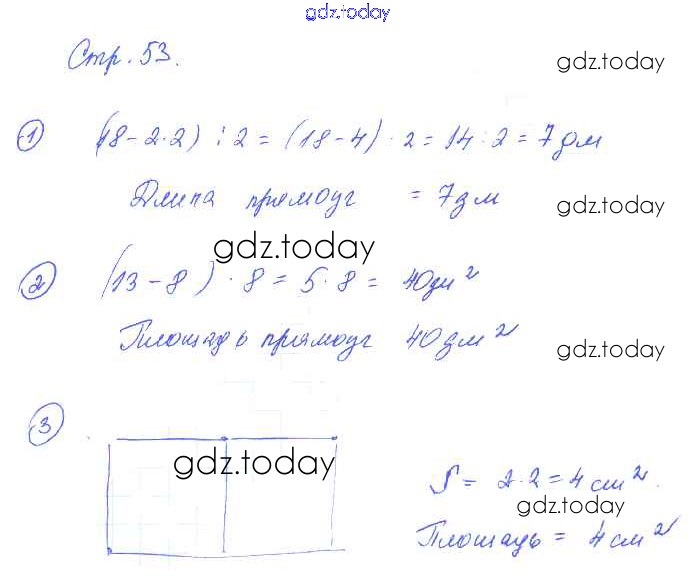 gdz.today
Стр. 53.
gdz.today
1 (18-2·2) : 2 = (18-4) · 2 = 14 : 2 = 7 дм
Длина прямоуг = 7 дм
gdz.today
gdz.today
2 (13-8) · 8 = 5·8 = 40 дм²
Площадь прямоуг 40 дм²
gdz.today
3
gdz.today
S = 2·2 = 4 см².
gdz.today
Площадь = 4 см²